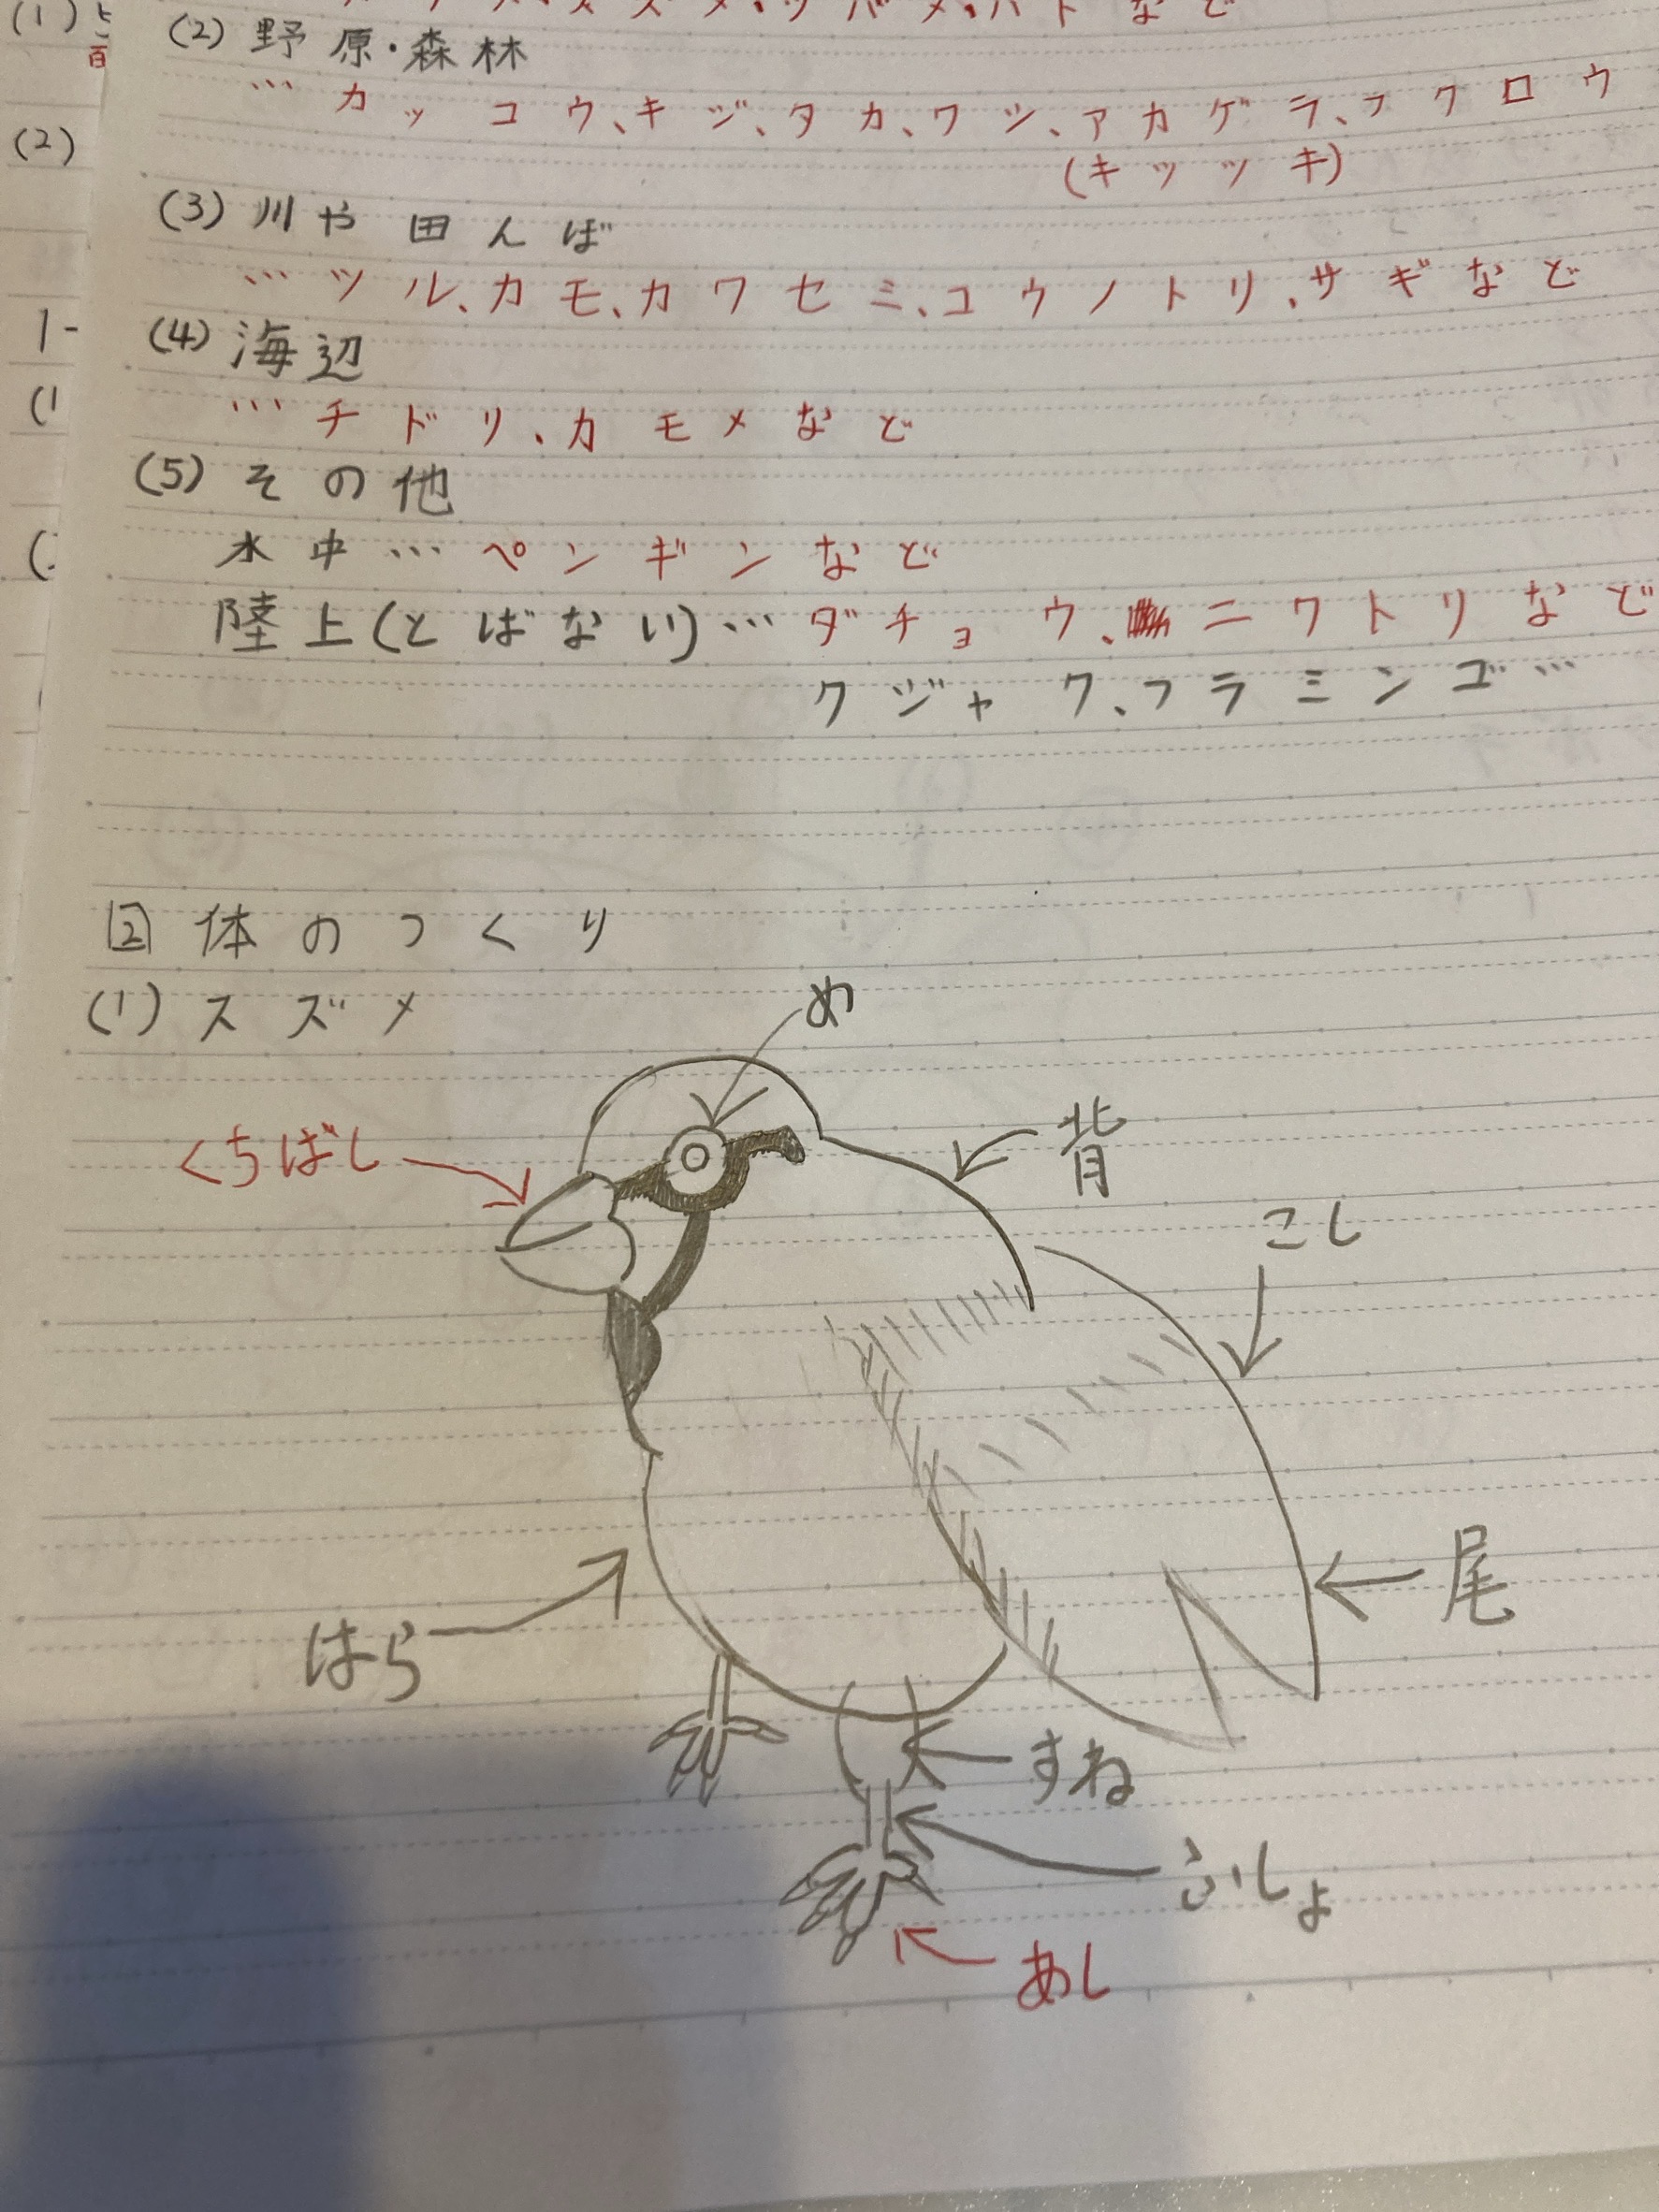 (2) 野原・森林
… カッコウ、キジ、タカ、ワシ、アカゲラ、フクロウ
(キツツキ)
(3) 川や田んぼ
… ツル、カモ、カワセミ、コウノトリ、サギなど
(4) 海辺
… チドリ、カモメなど
(5) その他
水中… ペンギンなど
陸上(とばない)… ダチョウ、ニワトリなど
クジャク、フラミンゴ…
2 体のつくり
(1) スズメ
め
くちばし
背
こし
尾
はら
すね
ふしょ
あし
(1)
(2)